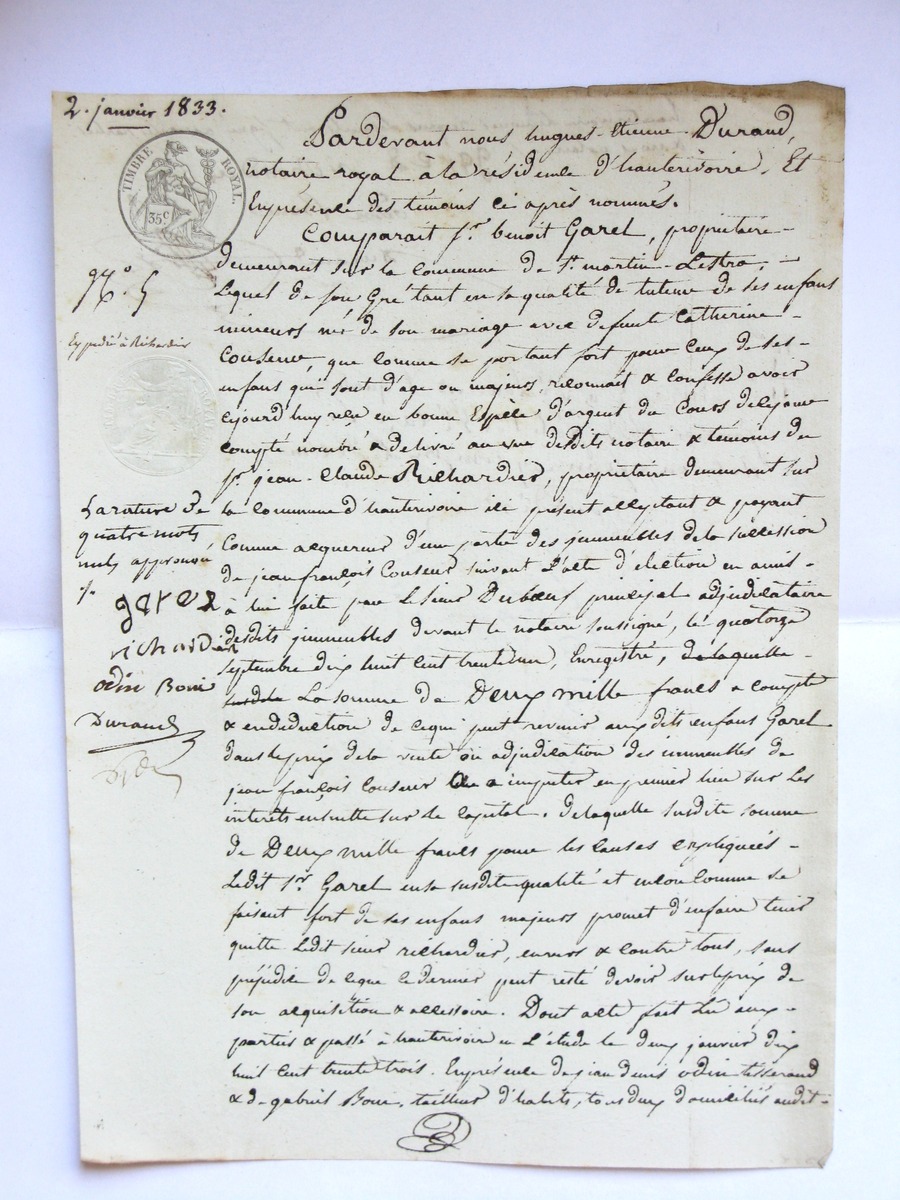 2. janvier 1833.
Pardevant nous hugues-Etienne Durand,
notaire royal à la résidence d'hauterivoire, Et
En présence des témoins ci après nommés.
TIMBRE ROYAL.
35c
Comparait Sr. benoit Garel, propriétaire
demeurant sur la Commune de St. martin-Lestra,
Lequel de son Gré tant en sa qualité de tuteur de ses enfans
mineurs né de son mariage avec défunte Catherine
Couseur, que comme se portant fort pour Ceux de ses
enfans qui sont d'age ou majeurs, reconnait & Confesse avoir
cejourd'huy reçu en bonne Espèce d'argent du Cours de cejour
Compté nombré & délivré au vue desdits notaire & témoins du
Sr. jean-Claude Richardier, propriétaire demeurant sur
la Commune d'hauterivoire ici présent acceptant & payant
Comme acquereur d'une partie des jmmeubles de la succession
de jean françois Couseur suivant L'acte d'élection en amis
à lui faite par Le sieur Duboeuf principal adjudicataire
desdits jmmeubles devant le notaire soussigné, le quatorze
Septembre dix huit Cent trente deux, Enregistré, de laquelle
susdite La somme de Deux mille francs a compte
& en déduction de ce qui peut revenir auxdits enfans Garel
dans le prix de la vente ou adjudication des immeubles de
jean françois Couseur a imputer en premier lieu sur les
interêts ensuitte sur le Capital. de laquelle susdite somme
de Deux mille francs pour les Causes expliquées
Ledit Sr. Garel en sa susdite qualité et encore Comme se
faisant fort de ses enfans majeurs promet d'en faire tenir
quitte Ledit sieur richardier, envers & contre tous, sans
préjudice de ce que ce dernier peut resté devoir sur le prix de
son acquisition & accessoire. Dont acte fait Lu aux
parties & passé à hauterivoire en L'étude le deux janvier dix
huit Cent trente trois. En présence de jean denis odin tisserand
& de gabriel Boni, tailleur d'habits, tous deux domiciliés audit
No. 5
Expédié à Richardier
La rature de
quatre mots
nuls approuvée
garel
richardier
odin Boni
Durand